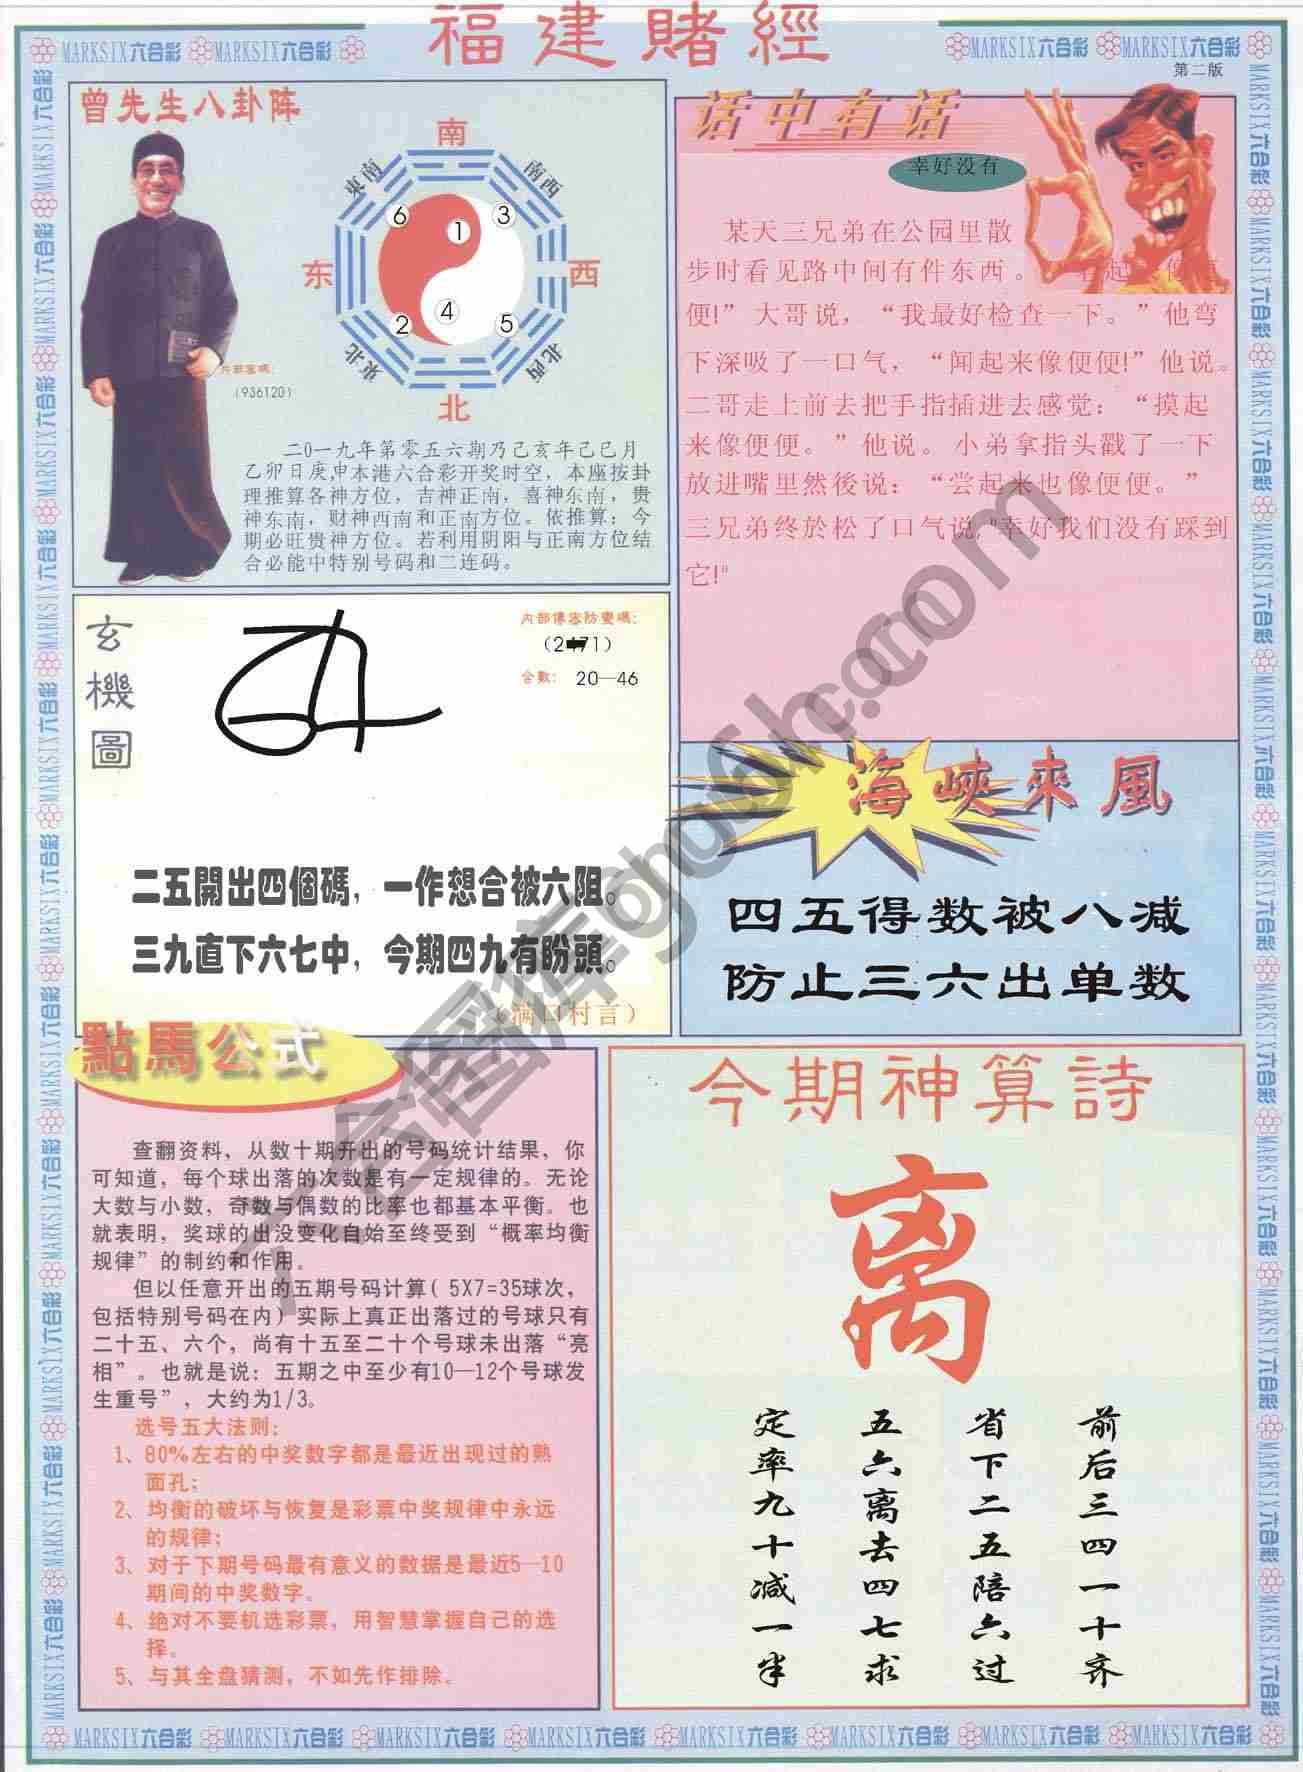 福建賭經
MARKSIX六合彩 MARKSIX六合彩
MARKSIX六合彩 MARKSIX六合彩
第二版
曾先生八卦阵
南
東南
南西
6
1
3
东
西
2
4
5
東北
北西
北
内部密碼：
（936120）
二0一九年第零五六期乃己亥年己巳月
乙卯日庚,申本港六合彩开奖时空，本座按卦
理推算各神方位，吉神正南，喜神东南，贵
神东南，财神西南和正南方位。依推算：今
期必旺贵神方位。若利用阴阳与正南方位结
合必能中特别号码和二连码。
话中有话
幸好没有
某天三兄弟在公园里散
步时看见路中间有件东西。
便!”大哥说，“我最好检查一下。”他弯
下深吸了一口气，“闻起来像便便!”他说。
二哥走上前去把手指插进去感觉：“摸起
来像便便。”他说。小弟拿指头戳了一下
放进嘴里然後说：“尝起来也像便便。”
三兄弟终於松了口气说,"幸好我们没有踩到
它!"
玄機圖
内部傳密防變碼：
合數： 20—46
二五開出四個碼，一作想合被六阻。
三九直下六七中，今期四九有盼頭。
（满口村言）
海峽來風
四五得数被八减
防止三六出单数
點馬公式
查翻资料，从数十期开出的号码统计结果，你
可知道，每个球出落的次数是有一定规律的。无论
大数与小数，奇数与偶数的比率也都基本平衡。也
就表明，奖球的出没变化自始至终受到“概率均衡
规律”的制约和作用。
但以任意开出的五期号码计算( 5X7=35球次，
包括特别号码在内)实际上真正出落过的号球只有
二十五、六个，尚有十五至二十个号球未出落“亮
相”。也就是说：五期之中至少有10—12个号球发
生重号”，大约为1/3。
选号五大法则：
1、80%左右的中奖数字都是最近出现过的熟
面孔；
2、均衡的破坏与恢复是彩票中奖规律中永远
的规律；
3、对于下期号码最有意义的数据是最近5—10
期间的中奖数字。
4、绝对不要机选彩票，用智慧掌握自己的选
择。
5、与其全盘猜测，不如先作排除。
今期神算詩
离
前后三四一十齐
省下二五陪六过
五六离去四七求
定率九十减一半
六合图库@gou6hc.com
MARKSIX六合彩 MARKSIX六合彩 MARKSIX六合彩 MARKSIX六合彩 MARKSIX六合彩 MARKSIX六合彩 MARKSIX六合彩 MARKSIX六合彩